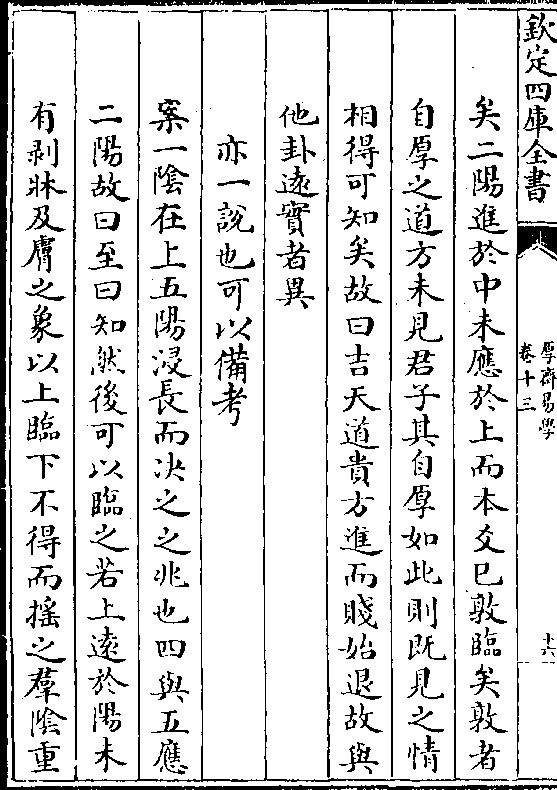 欽定四庫全書
厚齋易學
卷十三
十六
矣二陽進於中未應於上而本爻已敦臨矣敦者
自厚之道方未見君子其自厚如此則既見之情
相得可知矣故曰吉天道貴方進而賤始退故與
他卦逺實者異
亦一說也可以備考
案一陰在上五陽浸長而決之之兆也四與五應
二陽故曰至曰知然後可以臨之若上逺於陽未
有剥牀及膚之象以上臨下不得而揺之羣陰重